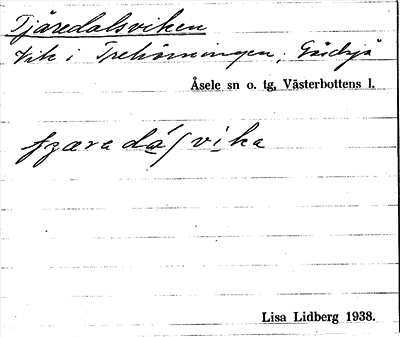 Tjäredalsviken
Vik i Trehörningen, Gäddsjö
Åsele sn o. tg, Västerbottens l.
vika
Lisa Lidberg 1938.